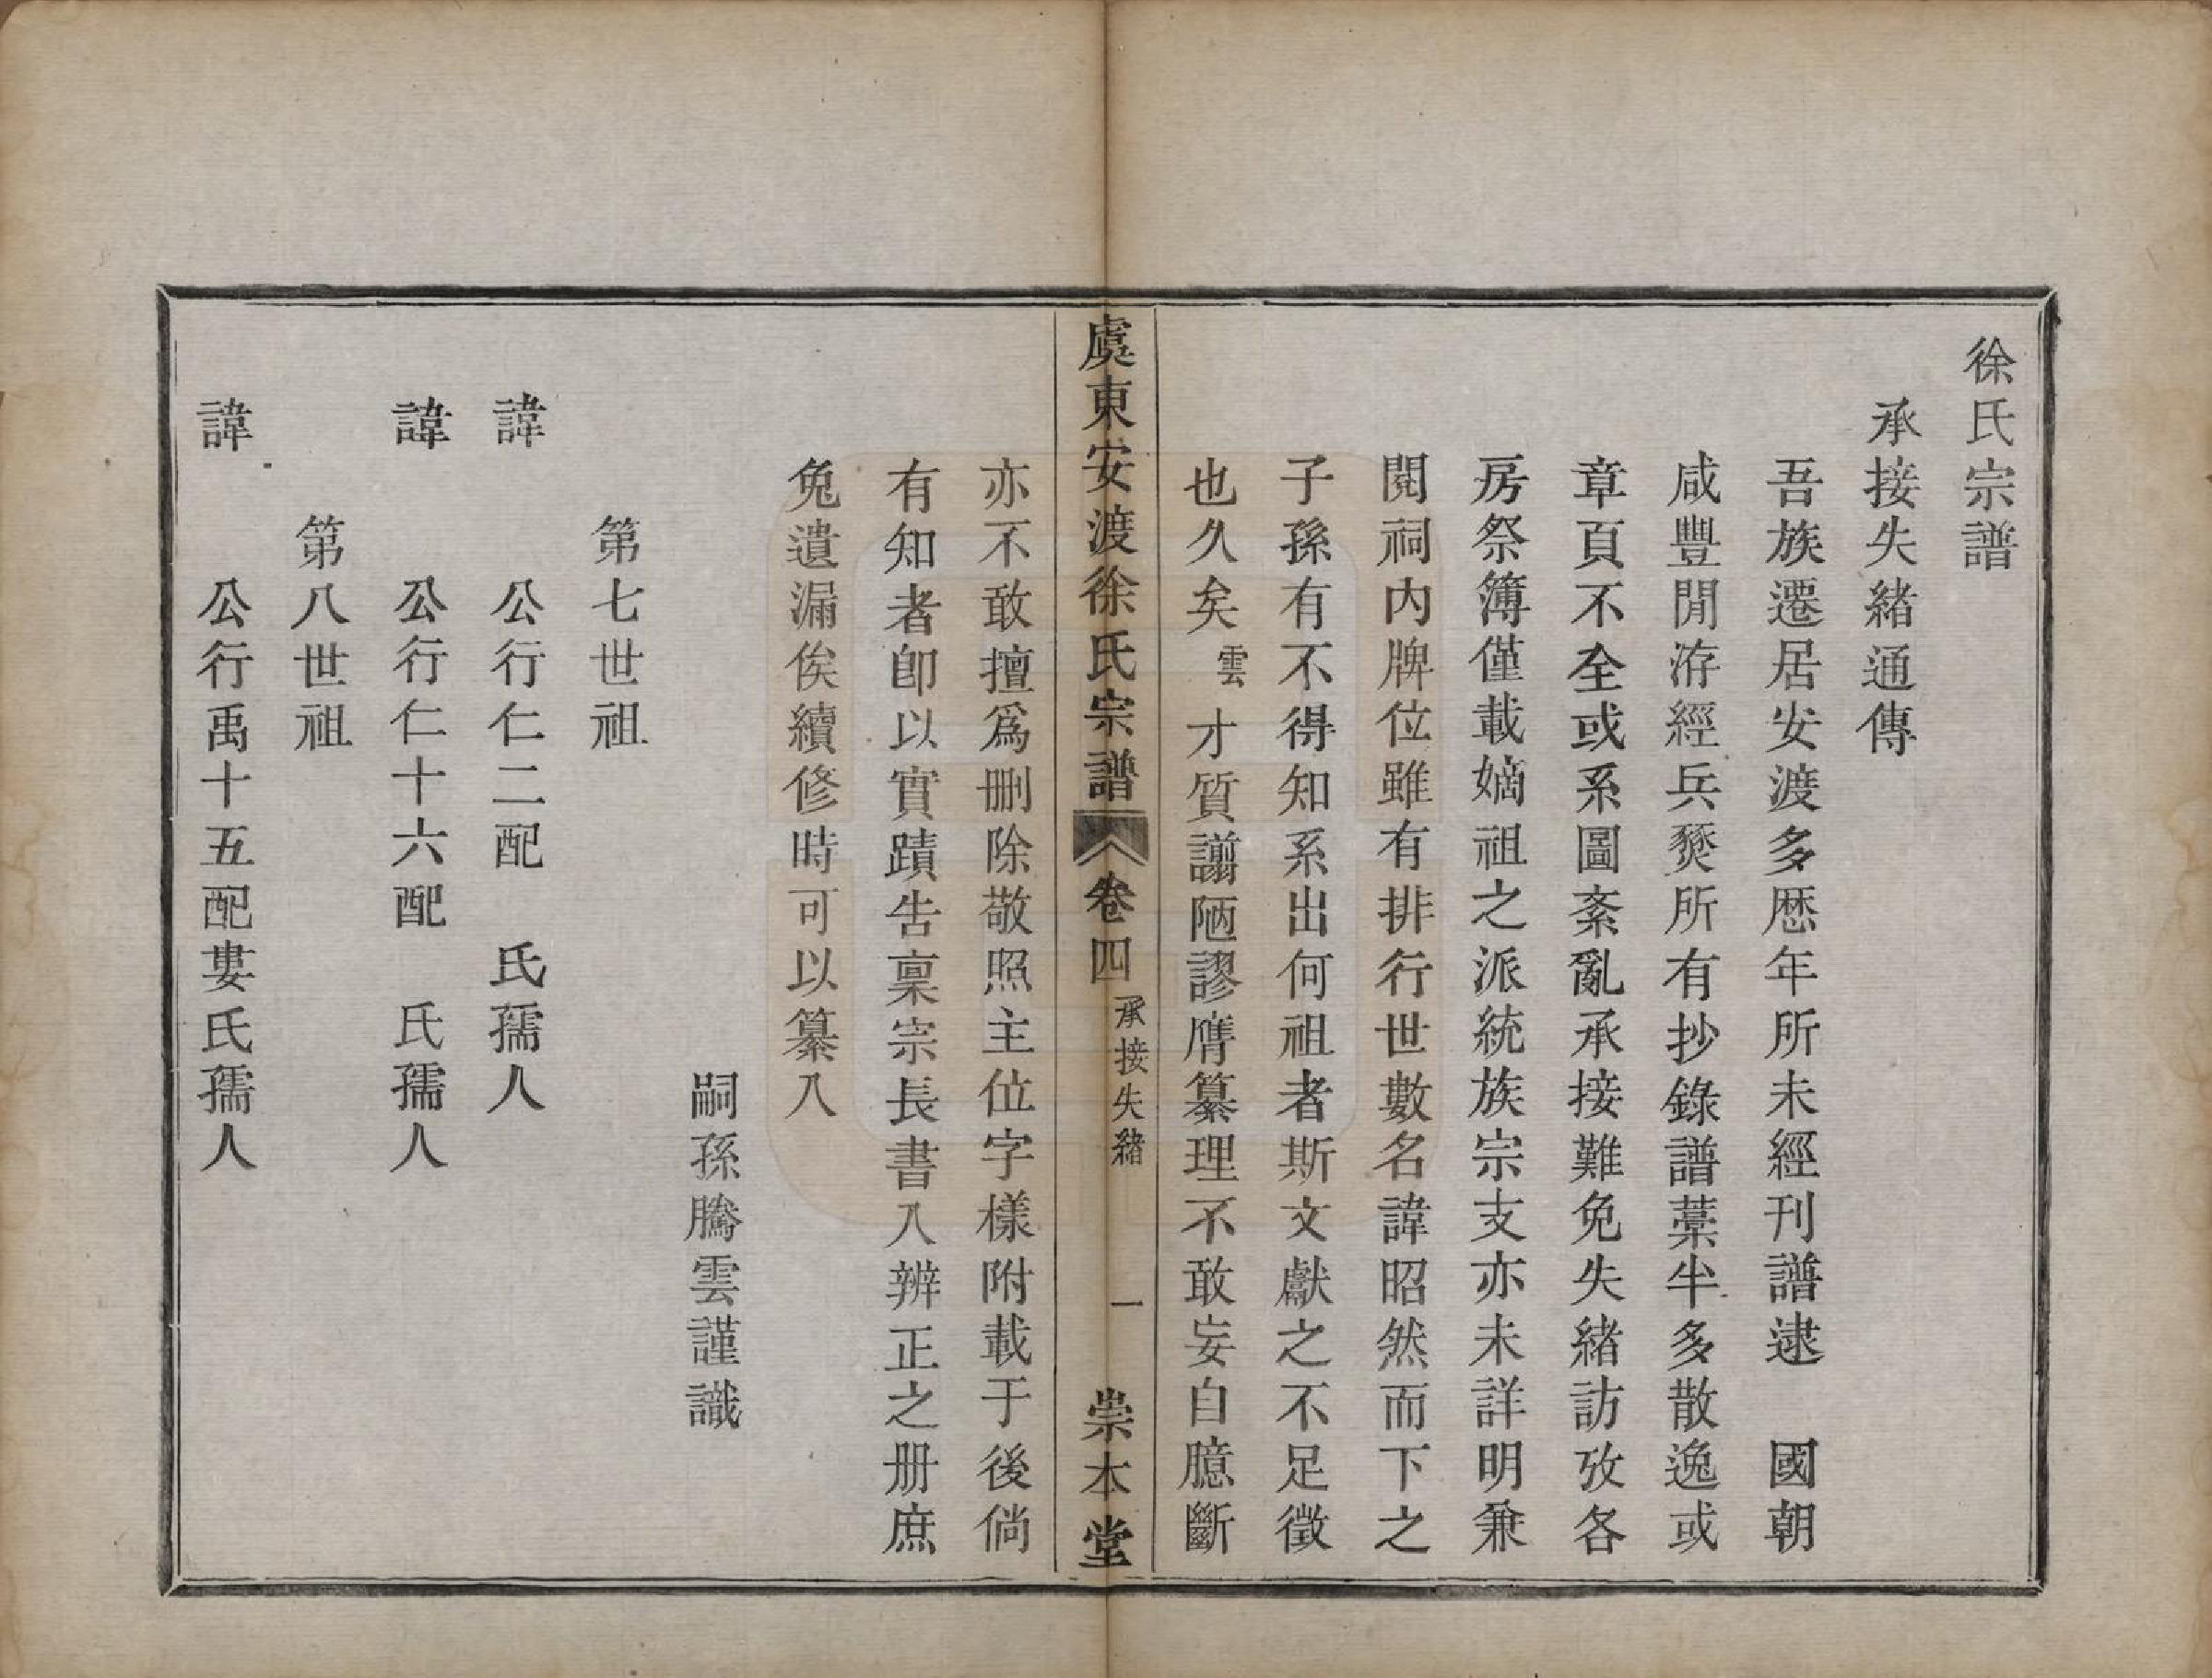 徐氏宗譜
承接失緒通傳
吾族遷居安渡多歷年所未經刊譜逮　國朝
咸豐閒洊經兵燹所有抄錄譜藁半多散逸或
章頁不全或系圖紊亂承接難免失緒訪攷各
房祭簿僅載嫡祖之派統族宗支亦未詳明兼
閱祠內牌位雖有排行世數名諱昭然而下之
子孫有不得知系出何祖者斯文獻之不足徵
也久矣雲才質譾陋謬膺纂理不敢妄自臆斷
虞東安渡徐氏宗譜　卷四　承接失緒　一　崇本堂
亦不敢擅爲刪除敬照主位字樣附載于後倘
有知者卽以實蹟吿稟宗長書入辨正之册庶
免遺漏俟續修時可以纂入
嗣孫騰雲謹識
第七世祖
諱　公行仁二配　氏孺人
諱　公行仁十六配　氏孺人
第八世祖
諱　公行禹十五配婁氏孺人